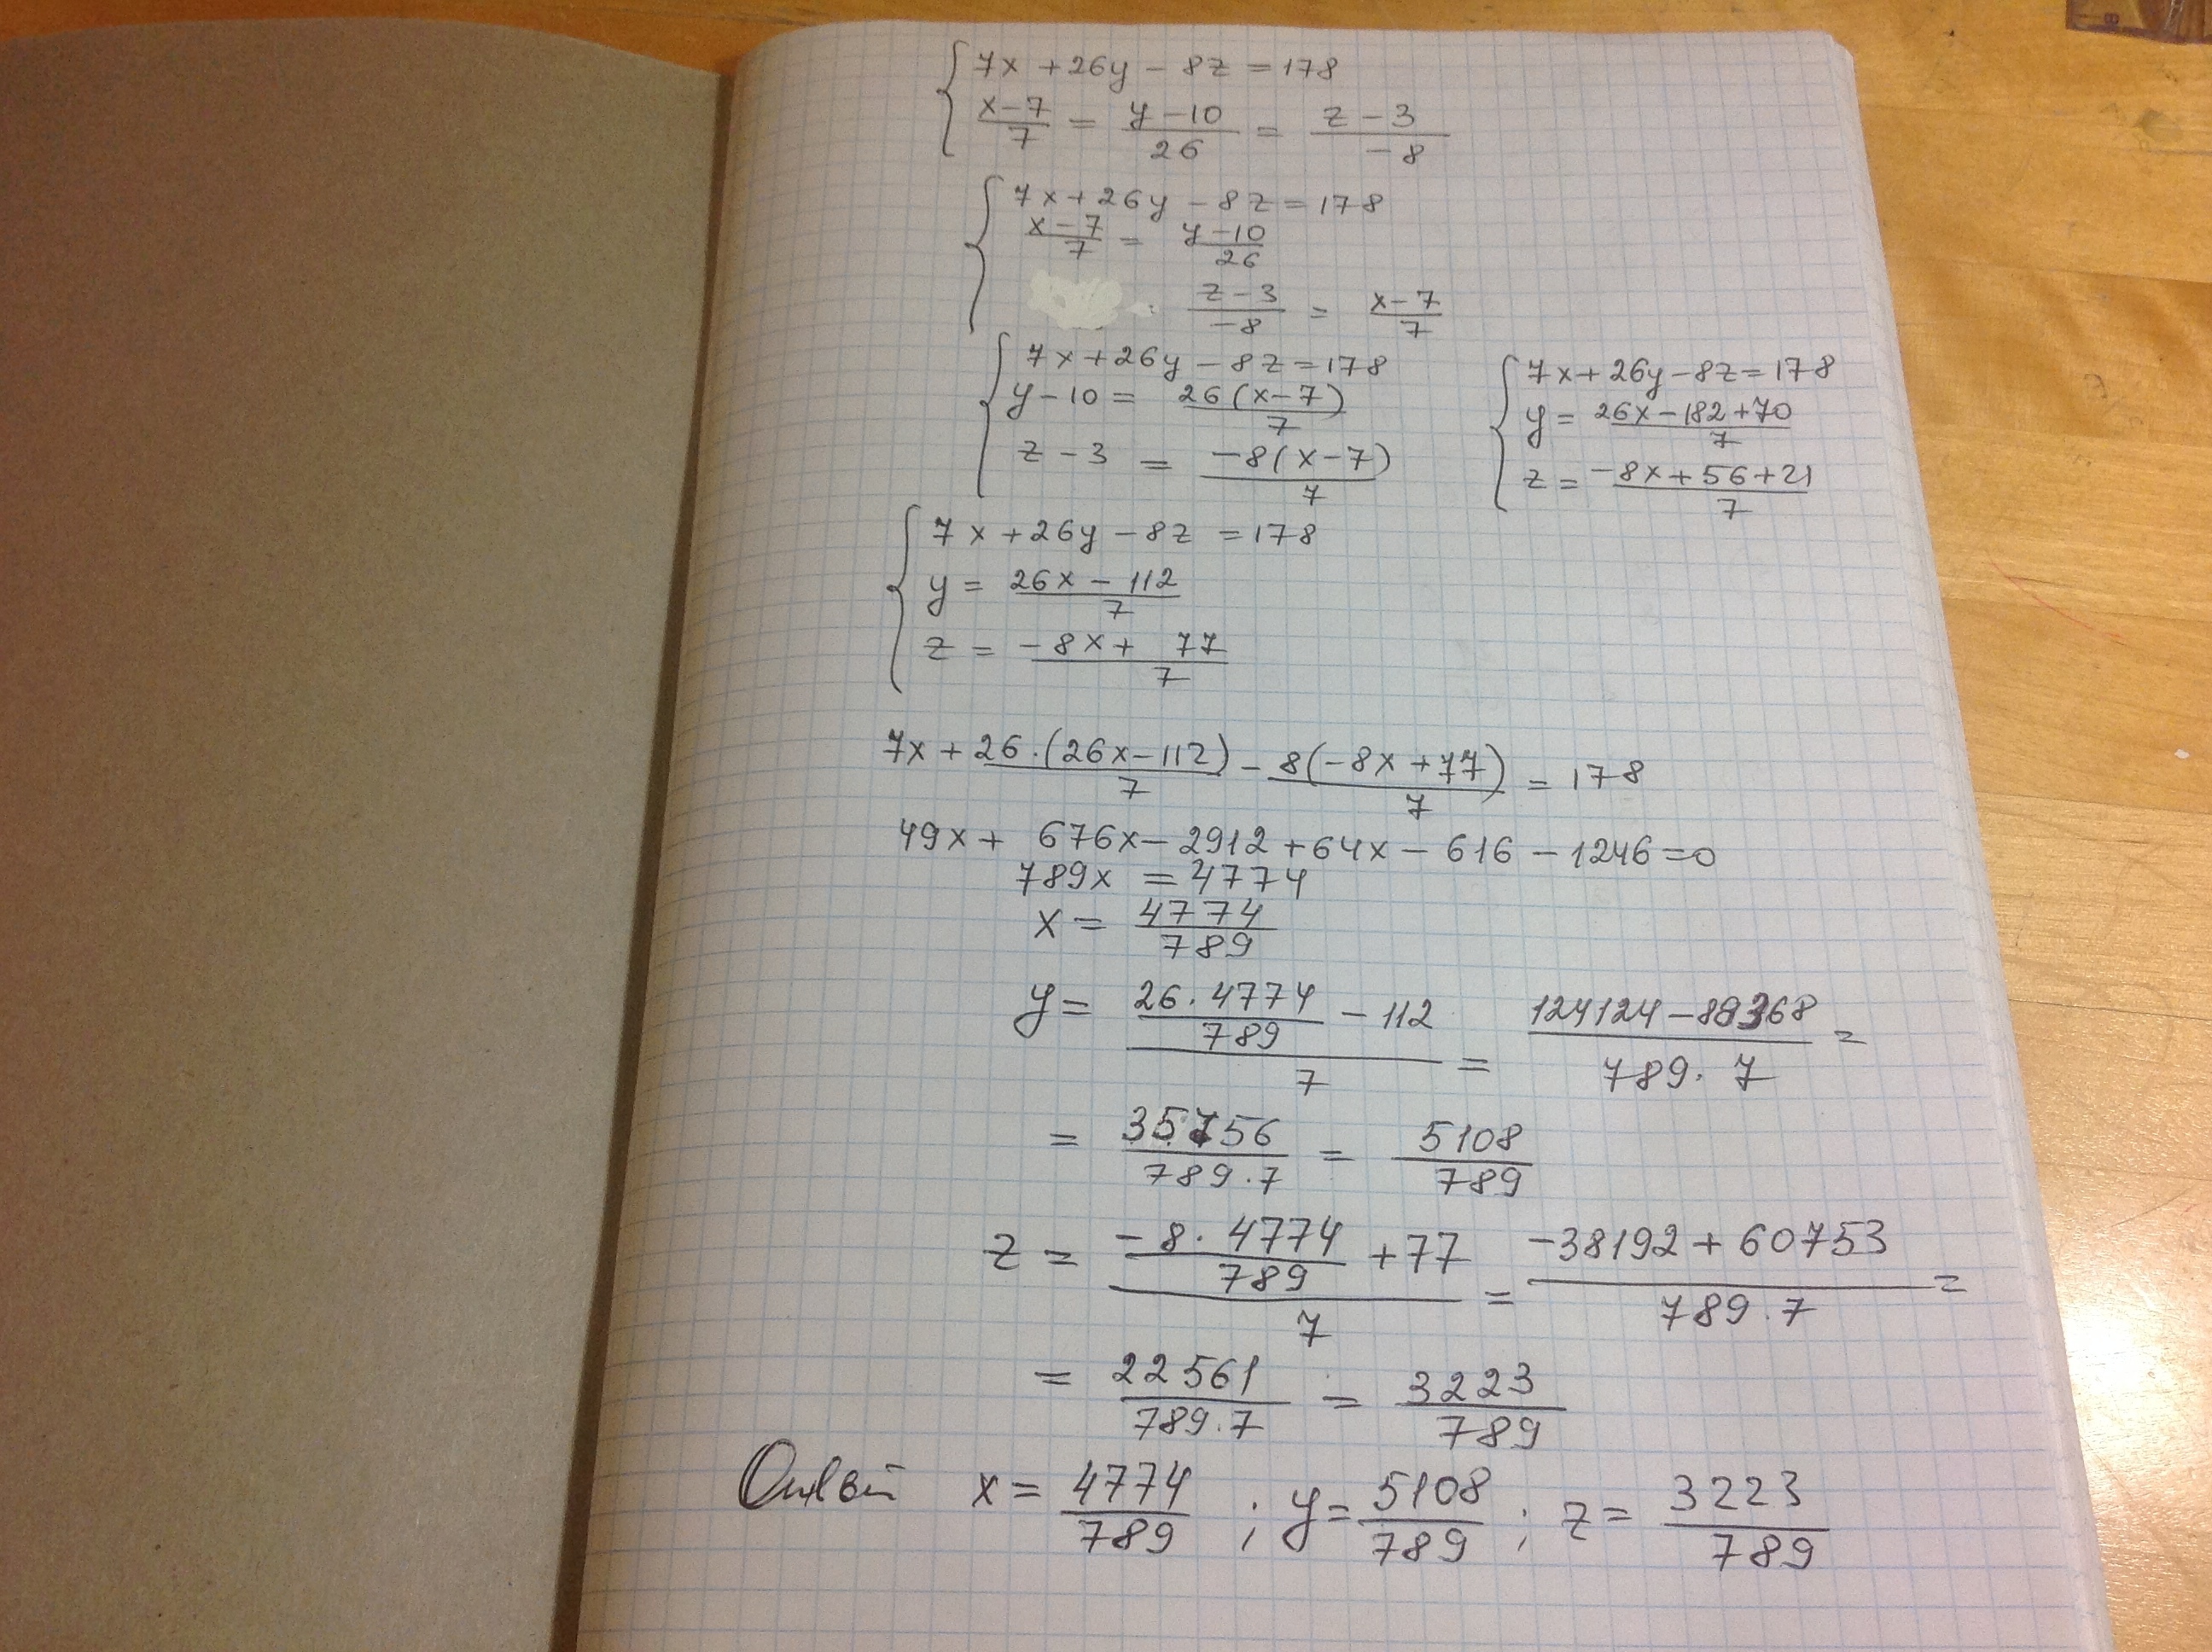 7x + 26y - 8z = 178
(x-7)/7 = (y-10)/26 = (z-3)/(-8)
7x + 26y - 8z = 178
(x-7)/7 = (y-10)/26
(z-3)/(-8) = (x-7)/7
7x + 26y - 8z = 178
y - 10 = 26(x-7)/7
z - 3 = -8(x-7)/7
7x + 26y - 8z = 178
y = (26x - 182 + 70)/7
z = (-8x + 56 + 21)/7
7x + 26y - 8z = 178
y = (26x - 112)/7
z = (-8x + 77)/7
7x + 26·(26x-112)/7 - 8(-8x+77)/7 = 178
49x + 676x - 2912 + 64x - 616 - 1246 = 0
789x = 4774
x = 4774/789
y = (26·4774/789 - 112)/7 = (124124 - 88368)/(789·7) =
= 35756/(789·7) = 5108/789
z = (-8·4774/789 + 77)/7 = (-38192 + 60753)/(789·7) =
= 22561/(789·7) = 3223/789
Ответ x = 4774/789 ; y = 5108/789 ; z = 3223/789